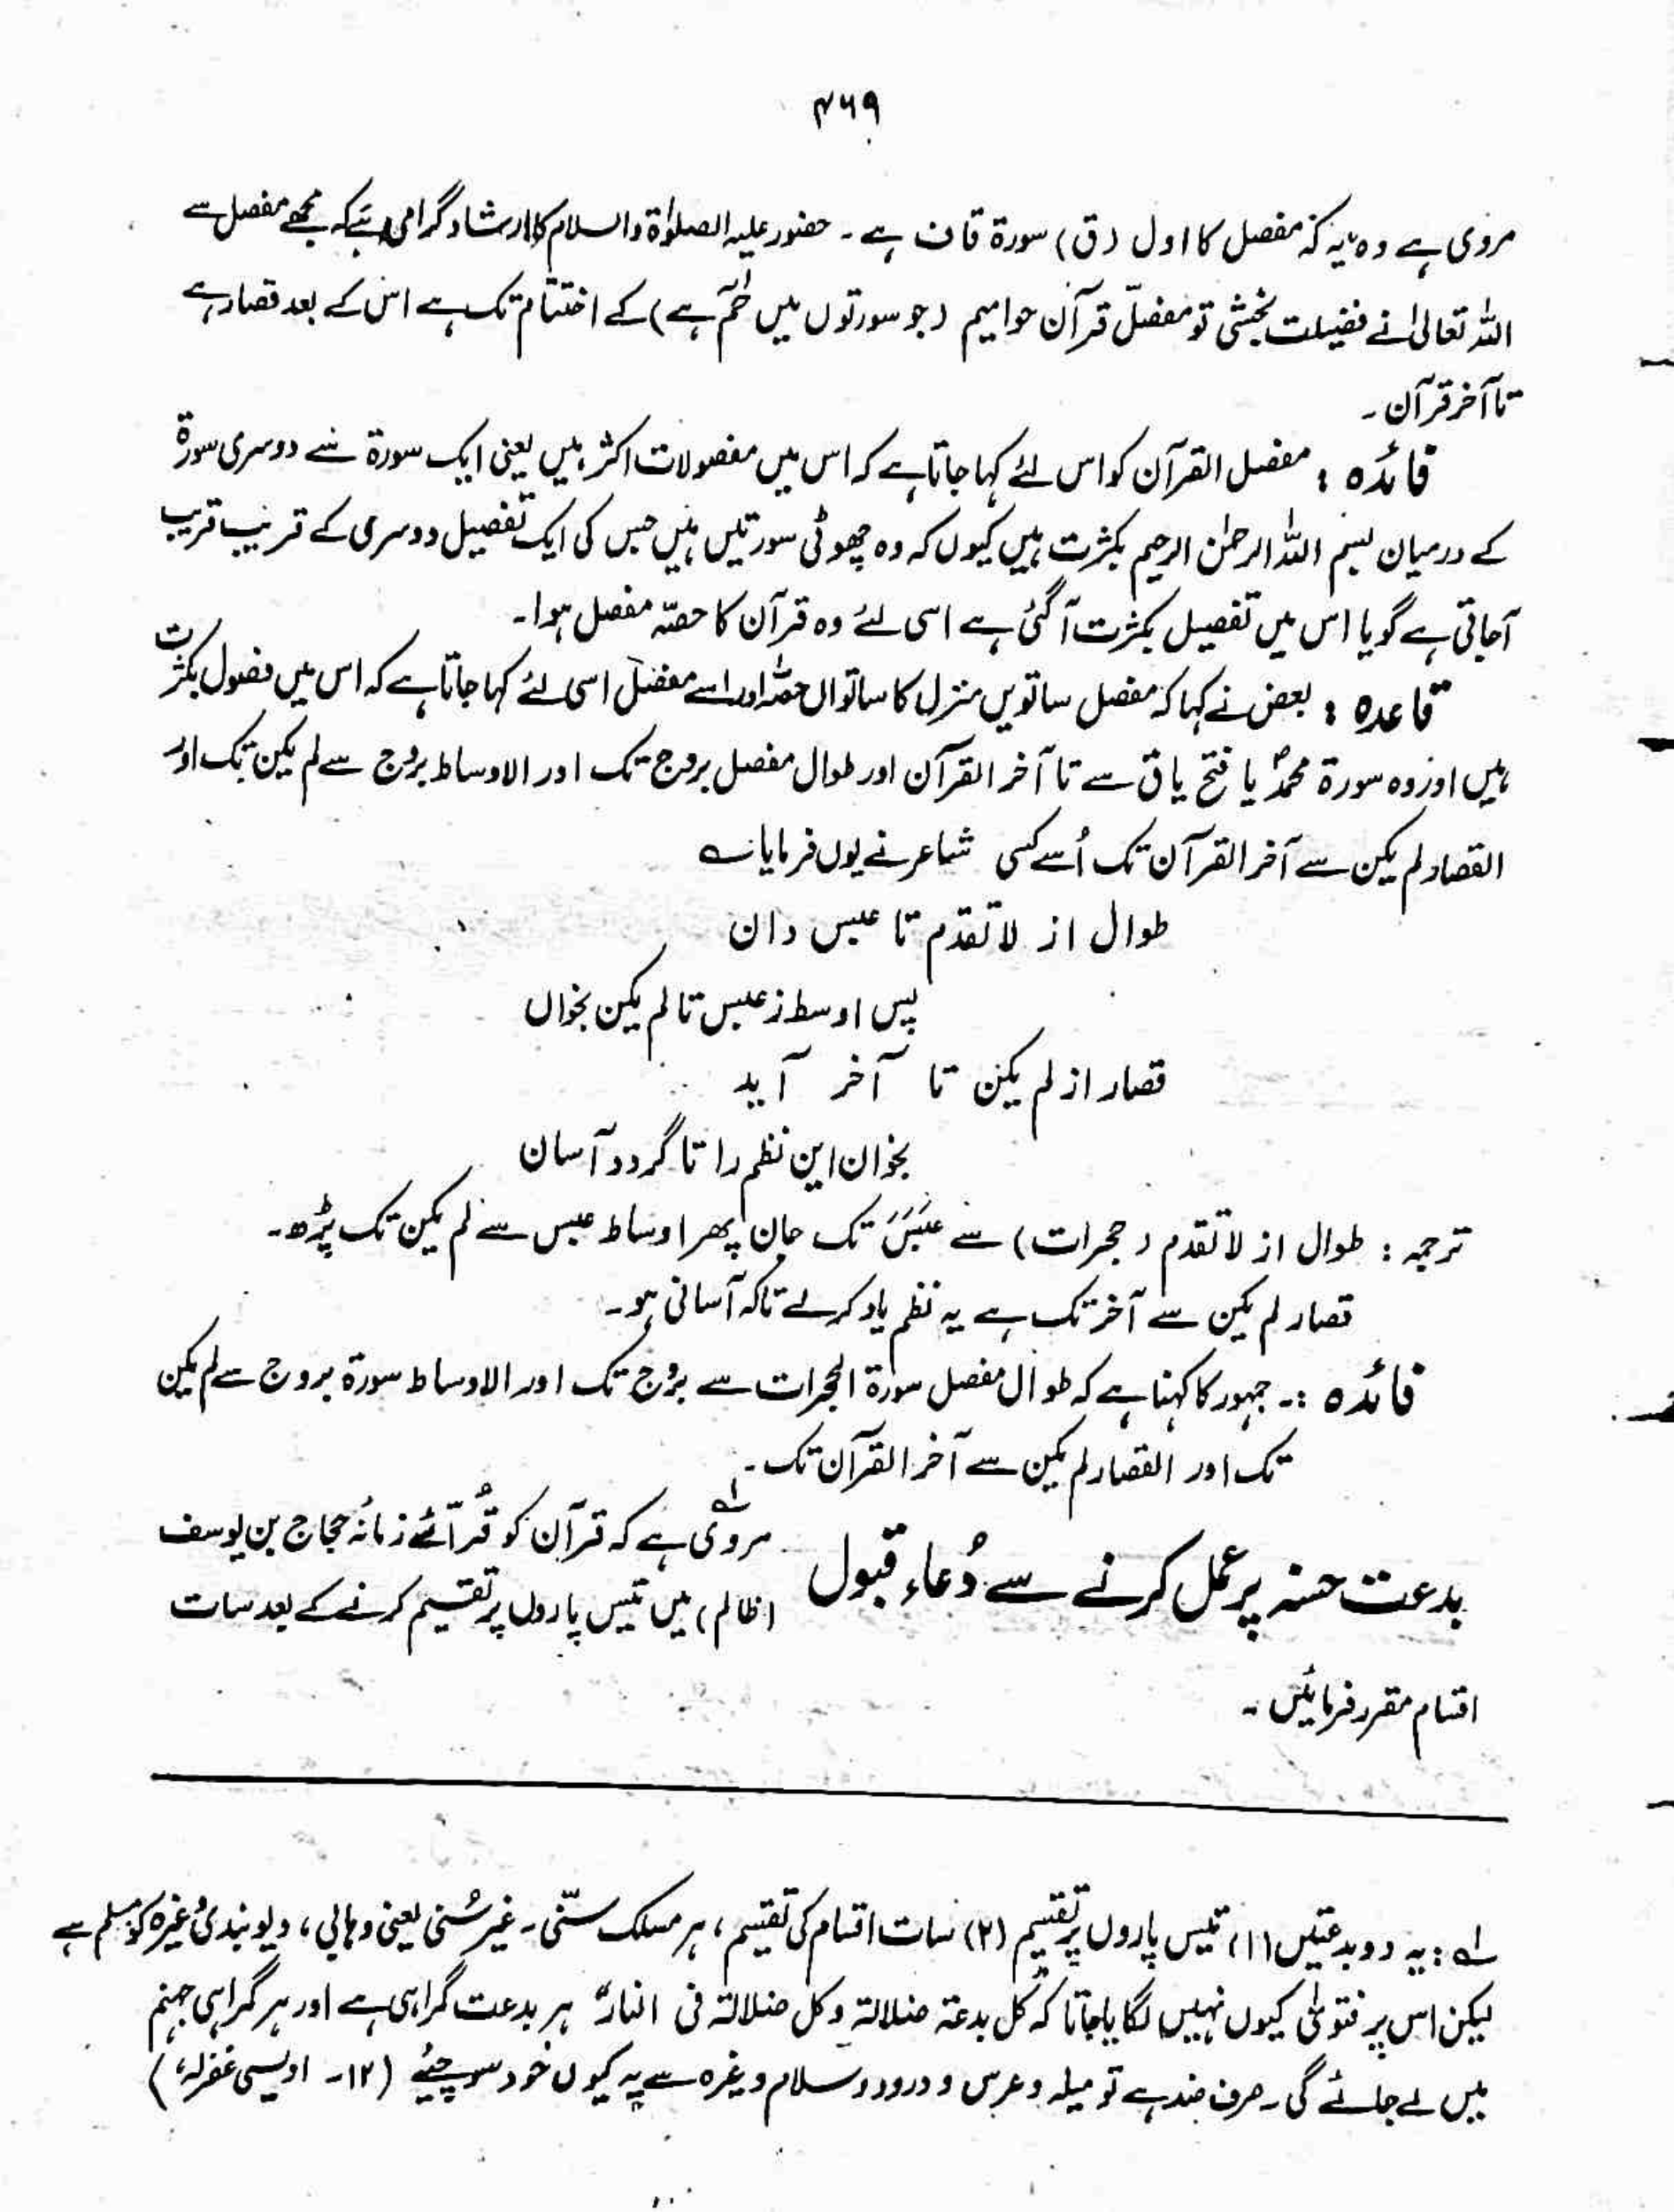 ۴۶۹
مروی ہے وہ یہ کہ مفصل کا اول (ق) سورۃ قاف ہے۔ حضور علیہ الصلوٰۃ والسلام کا ارشاد گرامی ہے کہ مجھے مفصل سے
اللہ تعالیٰ نے فضیلت بخشی تو مفصّل قرآن حوامیم (جو سورتوں میں حٰمٓ ہے) کے اختتام تک ہے اس کے بعد قصار ہے
تا آخر قرآن۔
فائدہ : مفصل القرآن کو اس لئے کہا جاتا ہے کہ اس میں مفصولات اکثر ہیں یعنی ایک سورۃ سے دوسری سورۃ
کے درمیان بسم اللہ الرحمٰن الرحیم بکثرت ہیں کیوں کہ وہ چھوٹی سورتیں ہیں جس کی ایک تفصیل دوسری کے قریب قریب
آجاتی ہے گویا اس میں تفصیل بکثرت آگئی ہے اسی لئے وہ قرآن کا حصّہ مفصل ہوا۔
قاعدہ : بعض نے کہا کہ مفصل ساتویں منزل کا ساتواں حصّہ اور اسے مفصل اسی لئے کہا جاتا ہے کہ اس میں فصول بکثرت
ہیں اور وہ سورۃ محمدؐ یا فتح یا ق سے تا آخر القرآن اور طوال مفصل بروج تک اور الاوساط بروج سے لم یکن تک اور
القصار لم یکن سے آخر القرآن تک اُسے کسی شاعر نے یوں فرمایا ؎
طوال از لا تقدم تا عبس دان
پس اوسط ز عبس تا لم یکن بخواں
قصار از لم یکن تا آخر آید
بخوان این نظم را تا گردد آسان
ترجمہ : طوال از لا تقدم (حجرات) سے عَبَسَ تک جان پھر اوساط عبس سے لم یکن تک پڑھ۔
قصار لم یکن سے آخر تک ہے یہ نظم یاد کر لے تاکہ آسانی ہو۔
فائدہ :۔ جمہور کا کہنا ہے کہ طوال مفصل سورۃ الحجرات سے بروج تک اور الاوساط سورۃ بروج سے لم یکن
تک اور القصار لم یکن سے آخر القرآن تک۔
بدعت حسنہ پر عمل کرنے سے دُعاء قبول
مروی ہے کہ قرآن کو قُرآئے زمانۂ حجاج بن یوسف
(ظالم) میں تیس پاروں پر تقسیم کرنے کے بعد سات
اقسام مقرر فرمائیں۔
لے : یہ دو بدعتیں (۱) تیس پاروں پر تقسیم (۲) سات اقسام کی تقسیم، ہر مسلک سنّی۔ غیر سُنی یعنی وہابی، دیوبندی وغیرہ کو مسلم ہے
لیکن اس پر فتویٰ کیوں نہیں لگایا جاتا کہ کل بدعۃ ضلالۃ وکل ضلالۃ فی النار ہر بدعت گمراہی ہے اور ہر گمراہی جہنم
میں لے جائے گی۔ صرف ضد ہے تو میلہ وعرس و درود وسلام وغیرہ سے یہ کیوں خود سوچئے (۱۲۔ اویسی غفرلہٗ)